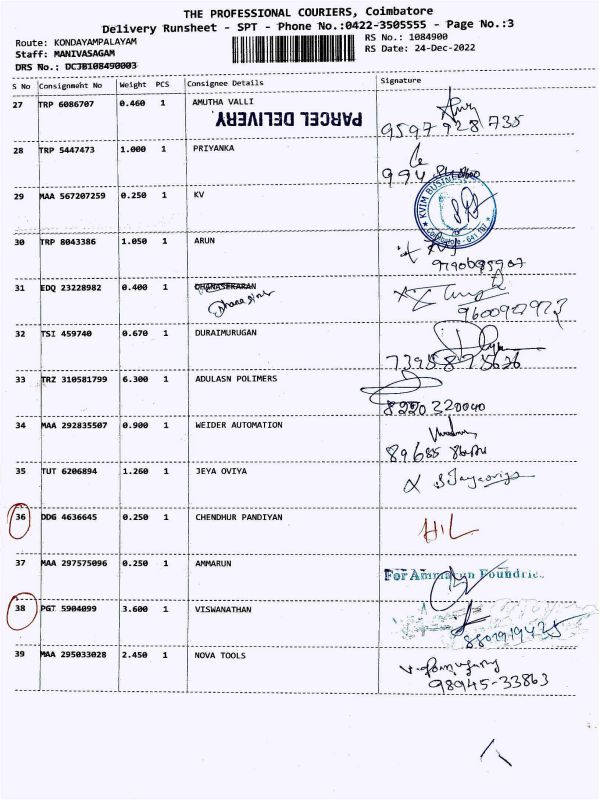 THE PROFESSIONAL COURIERS, Coimbatore
Delivery Runsheet - SPT - Phone No.:0422-3505555 - Page No.:3
Route: KONDAYAMPALAYAM
RS No.: 1084900
Staff: MANIVASAGAM
RS Date: 24-Dec-2022
DRS No.: DCJB108490003
S No Consignment No Weight PCS Consignee Details Signature
27 TRP 6086707 0.460 1 AMUTHA VALLI
PARCEL DELIVERY
9597 928 735
28 TRP 5447473 1.000 1 PRIYANKA
29 MAA 567207259 0.250 1 KV
KVIM BUSINESS
Coimbatore - 641 107
30 TRP 8043386 1.050 1 ARUN
31 EDQ 23228982 0.400 1 DHANASEKARAN
9600927923
32 TSI 459740 0.670 1 DURAIMURUGAN
33 TRZ 310581799 6.300 1 ADULASN POLIMERS
8220320040
34 MAA 292835507 0.900 1 WEIDER AUTOMATION
35 TUT 6206894 1.260 1 JEYA OVIYA
36 DDG 4636645 0.250 1 CHENDHUR PANDIYAN
H/L
37 MAA 297575096 0.250 1 AMMARUN
For Ammarun Foundries
38 PGT 5904099 3.600 1 VISWANATHAN
39 MAA 295033028 2.450 1 NOVA TOOLS
98945-33863